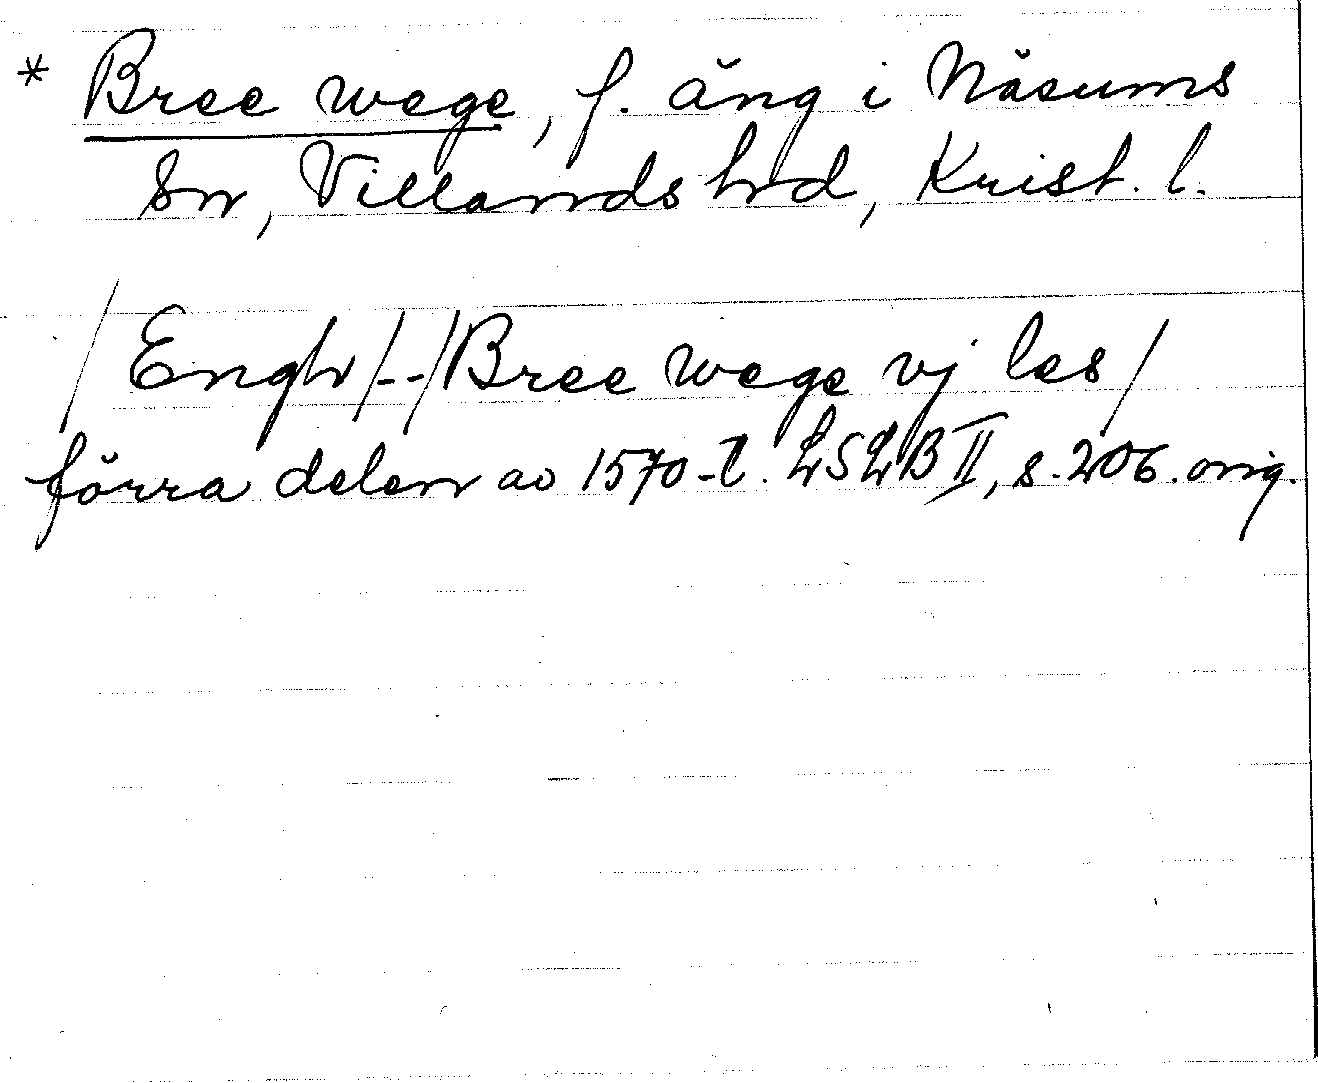 * Bree wege, f. äng i Näsums
sn, Villands hrd, Krist. l.
/Engh/--/Bree wege vj les/
förra delen av 1570-t. LSLB II, s. 206. orig.